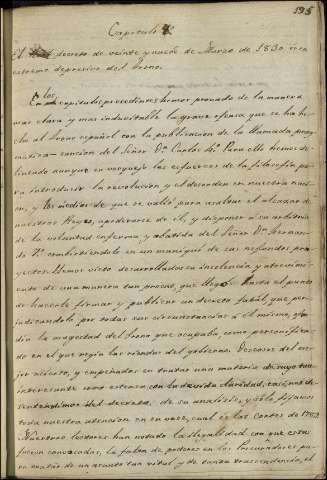 195
Capitulo 8.
El decreto de veinte y nueve de Marzo de 1830, es en
estremo depresivo del Trono.
En los capitulos precedentes hemos provado de la manera
mas clara y mas indubitable la grave ofensa que se ha he-
cho al Trono español con la publicacion de la llamada prag-
matica-sancion del Señor Dn. Carlos 4º. Para ello hemos de-
lineado aunque en vosquejo los esfuerzos de la filosofia pa-
ra introducir la revolucion y el desorden en nuestra naci-
on, y los medios de que se valió para asaltar el alcazar de
nuestros Reyes, apoderarse de él, y disponer á su arbitrio
de la voluntad enferma y abatida del Señor Dn. Fernan-
do 7º combirtiendolo en un maniquí de sus nefandos pro-
yectos. Hemos visto desarrollados su insolencia y atrevimi-
ento de una manera tan procaz, que llegó hasta el punto
de hacerle firmar y publicar un decreto fatal, que per-
judicandole por todas sus circunstancias á él mismo, ofen-
dia la magestad del Trono que ocupaba, como personifica-
do en el que regia las riendas del gobierno. Deseosos del me-
jor acierto, y empeñados en tratar una materia de suyo tan
interesante como estensa con la debida claridad, casi nos de-
sentendimos del decreto, de su analisis, y solo fijamos
toda nuestra atencion en su vase, cual es las Cortes de 1789.
Nuestros lectores han notado la ilegalidad con que estas
fueron convocadas, la falta de poderes en los Procuradores pa-
ra tratar de un asunto tan vital y de tanta trascendencia, el